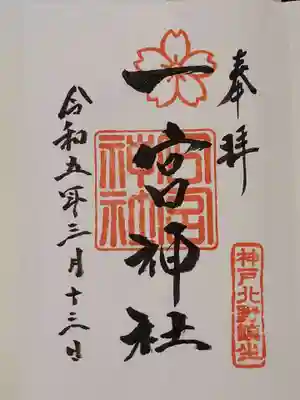 奉拝
一宮神社
神戸北野鎮坐
令和五年三月十三日